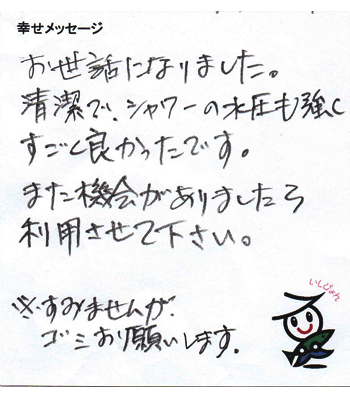 幸せメッセージ
お世話になりました。
清潔で、シャワーの水圧も強く
すごく良かったです。
また機会がありましたら
利用させて下さい。
※すみませんが、
ゴミお願いします。
いしぴょん